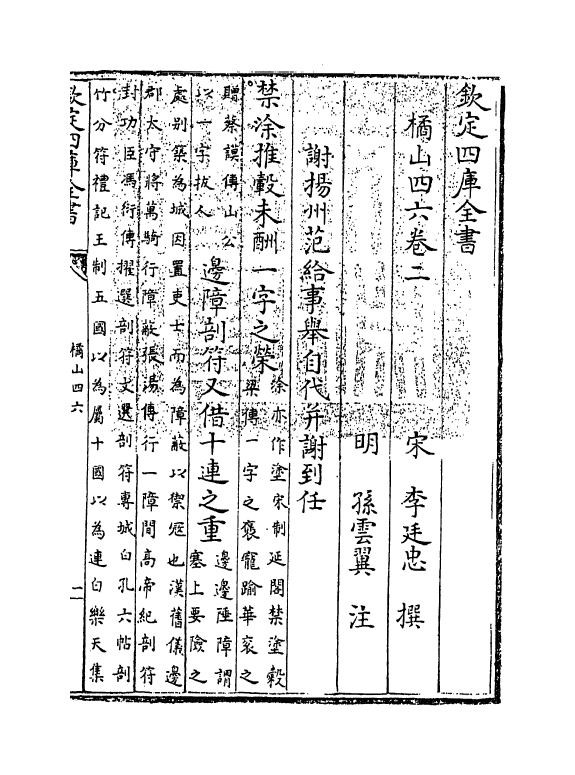 欽定四庫全書
橘山四六卷二
宋 李廷忠 撰
明 孫雲翼 注
謝揚州范給事舉自代并謝到任
禁涂推轂未酬一字之榮
涂亦作塗宋制延閣禁塗轂
梁傳一字之褒寵踰華衮之
贈蔡謨傳山公
以一字拔人
邊障剖符又借十連之重
邊邊陲障謂
塞上要險之
處别築為城因置吏士而為障蔽以禦寇也漢舊儀邊
郡太守將萬騎行障蔽張湯傳行一障間高帝紀剖符
封功臣馮衍傳擢選剖符文選剖符專城白孔六帖剖
竹分符禮記王制五國以為屬十國以為連白樂天集
欽定四庫全書
橘山四六